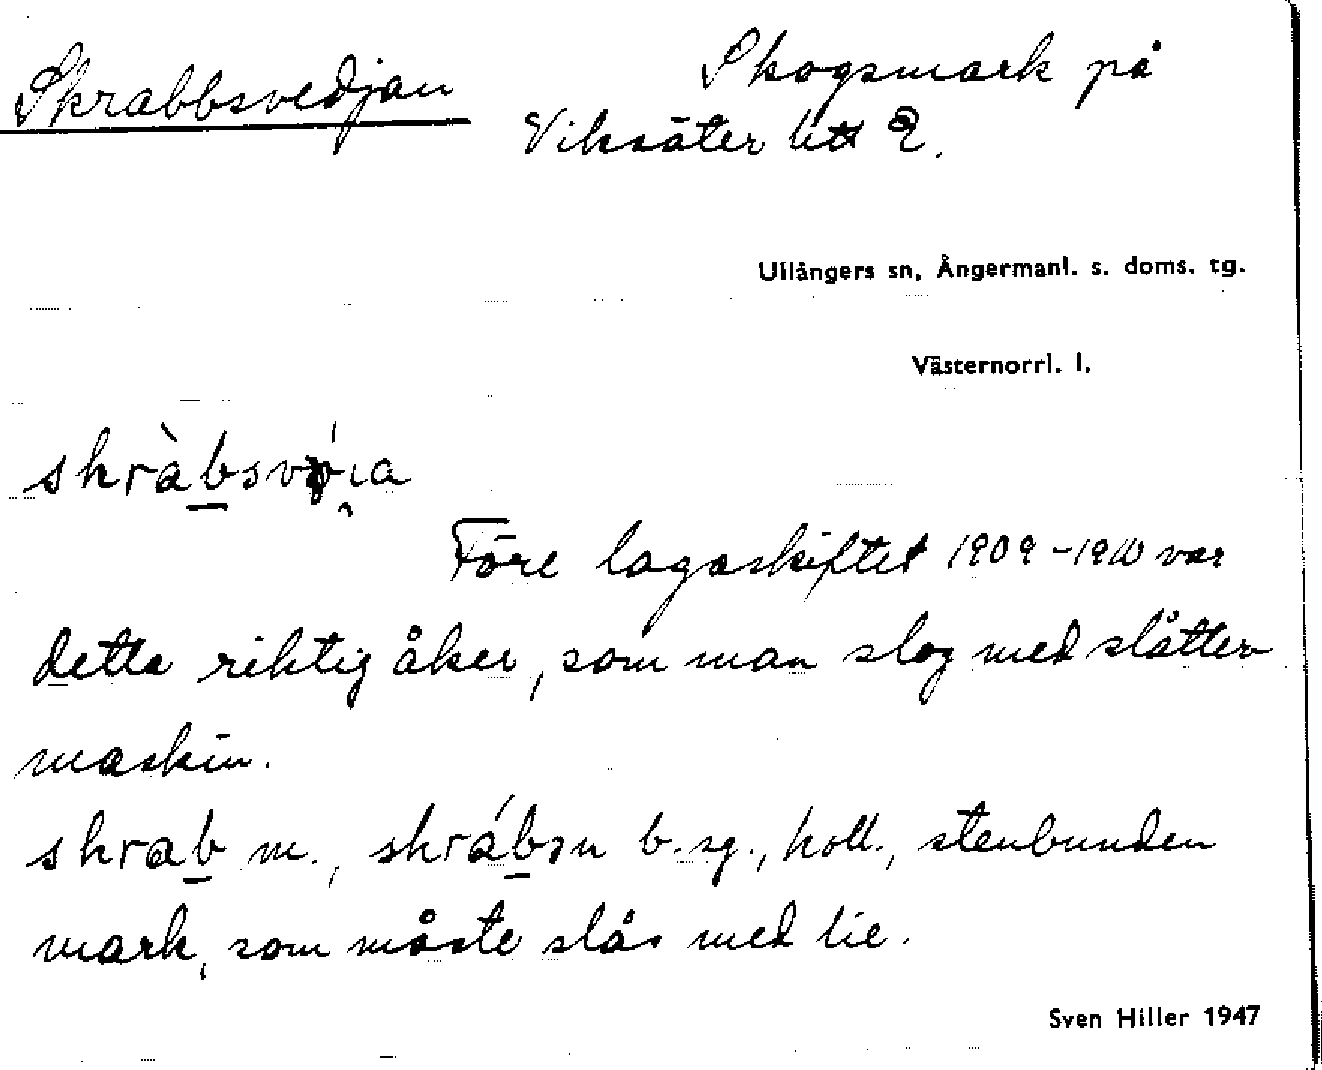 Skrabbsvedjan Skogsmark på
Viksäter litt 2.
Ullångers sn, Ångermanl. s. doms. tg.
Västernorrl. l.
Före lagaskiftet 1909-1910 var
detta riktig åker, som man slog med slåtter
maskin.
skrab m., skrábən b. sg., koll., stenbunden
mark, som måste slås med lie.
Sven Hiller 1947